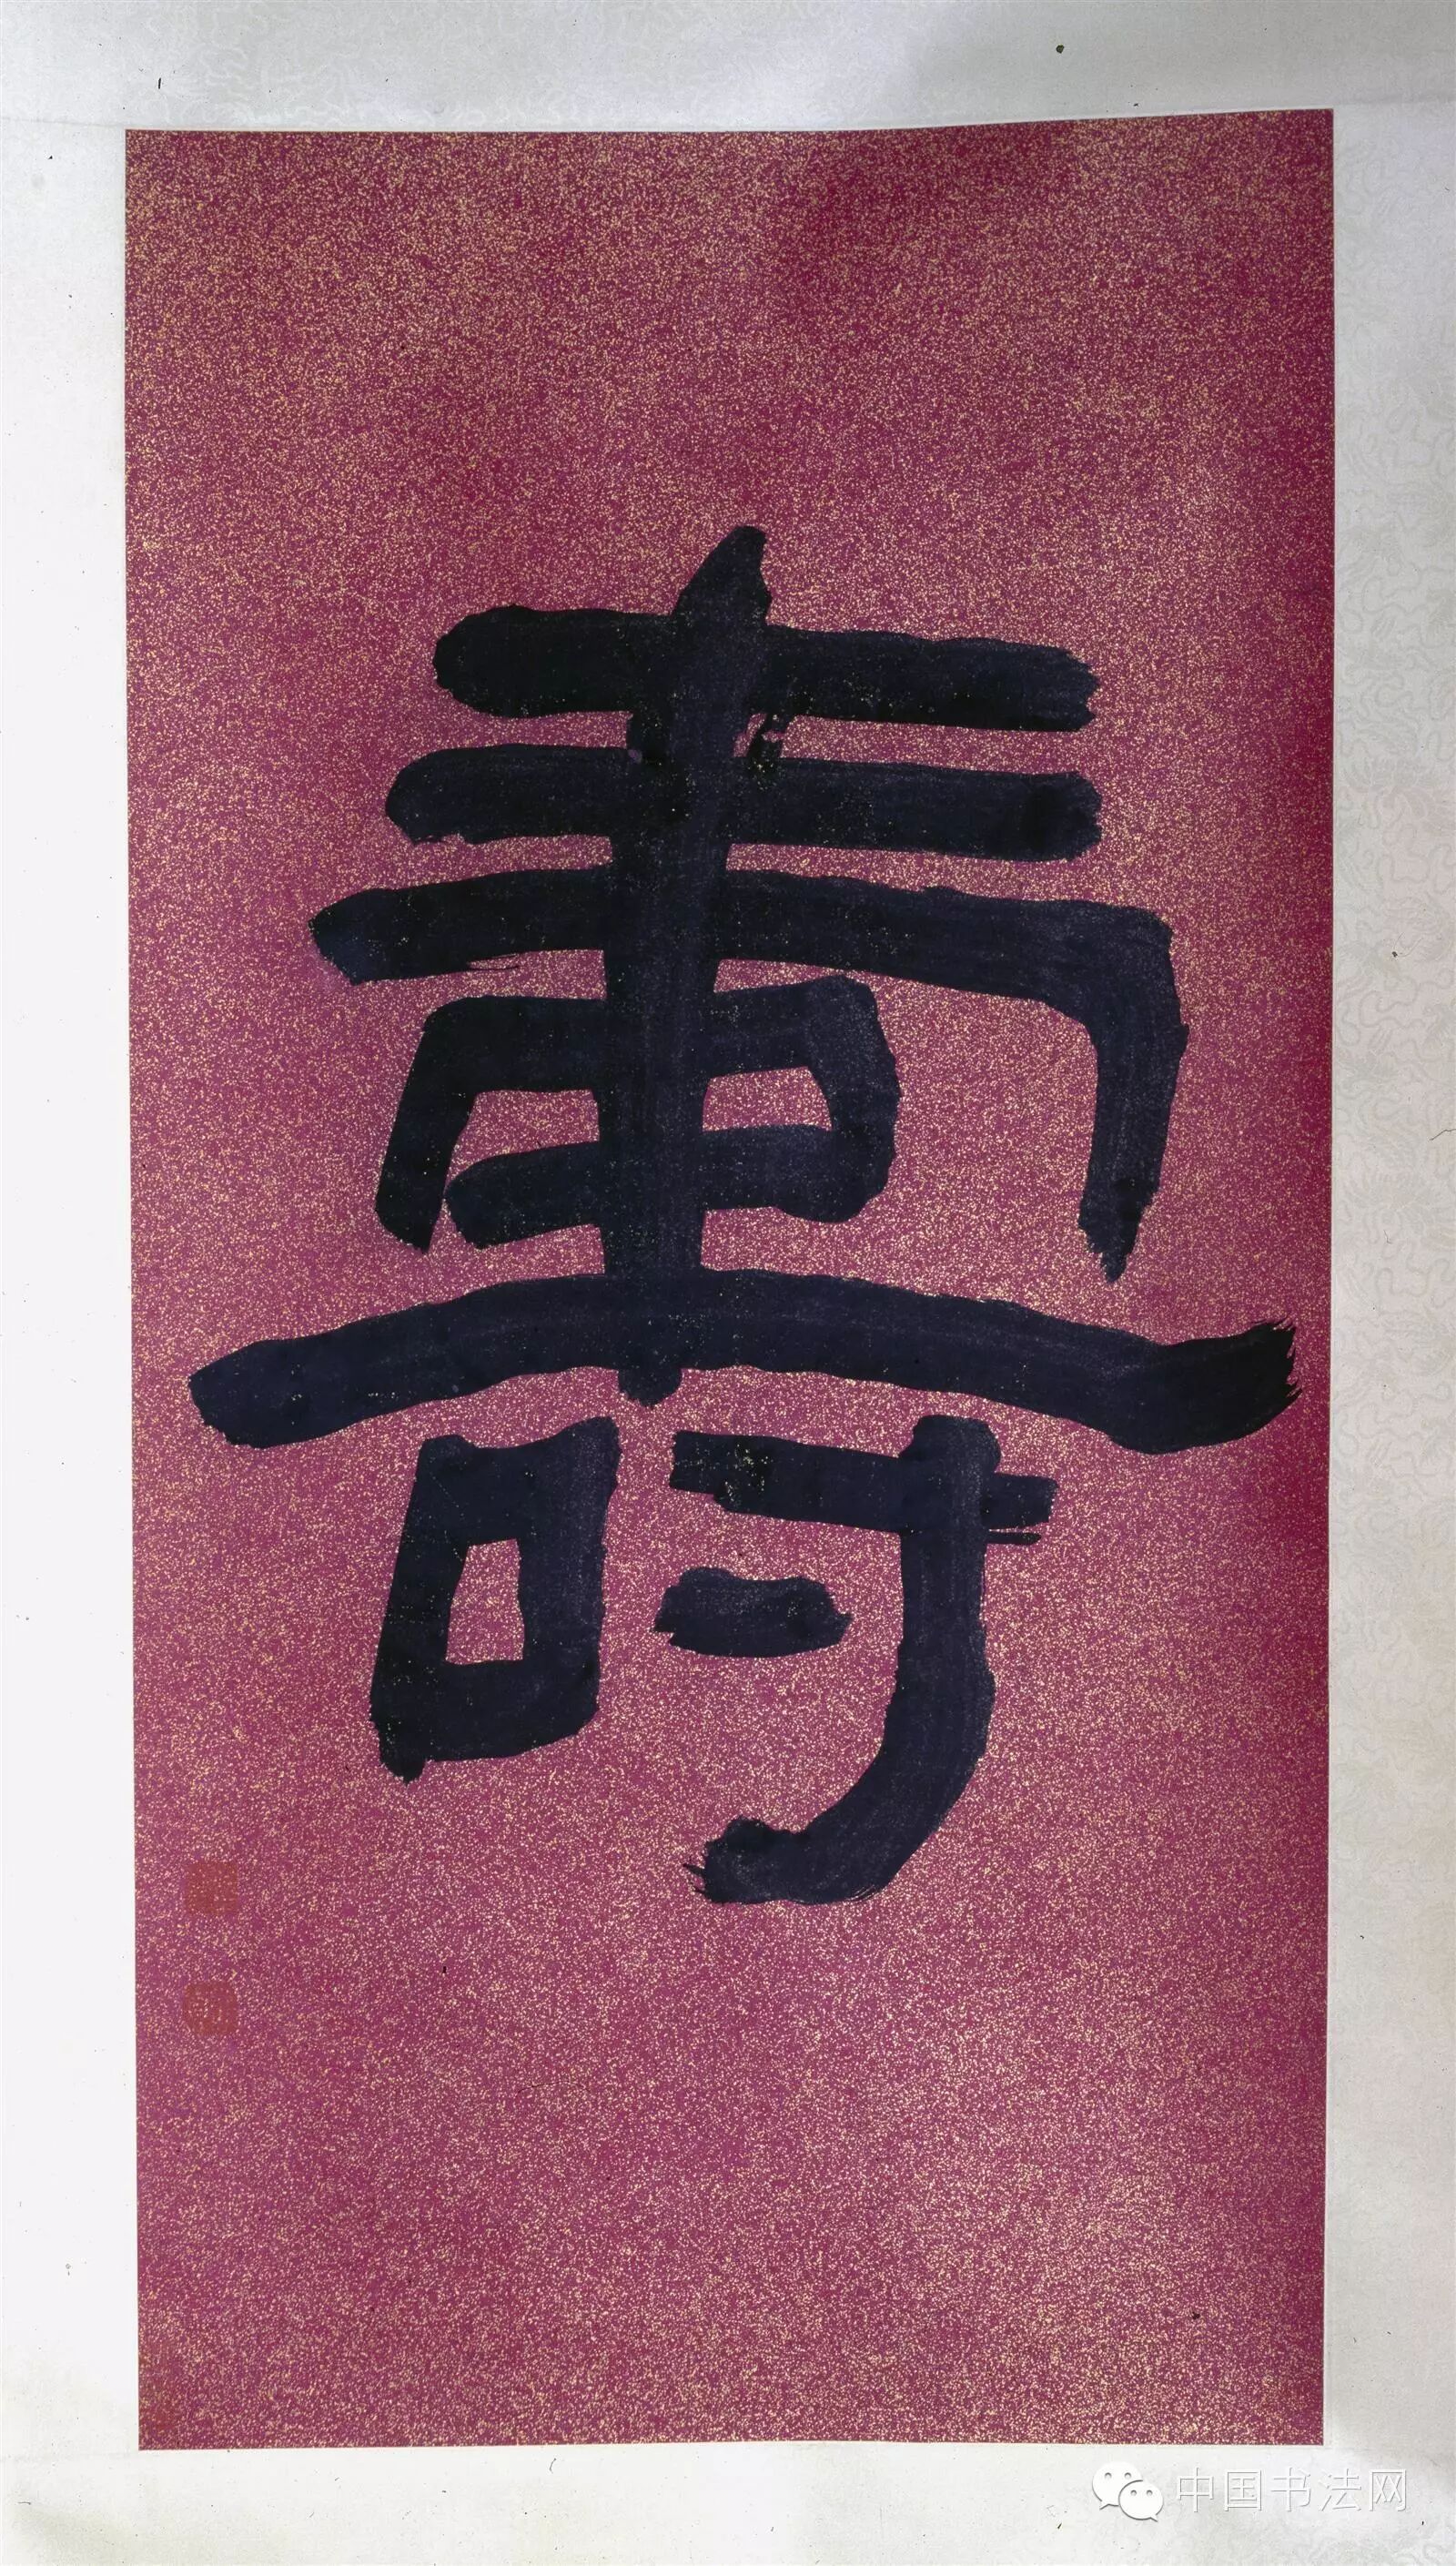 壽
中国书法网